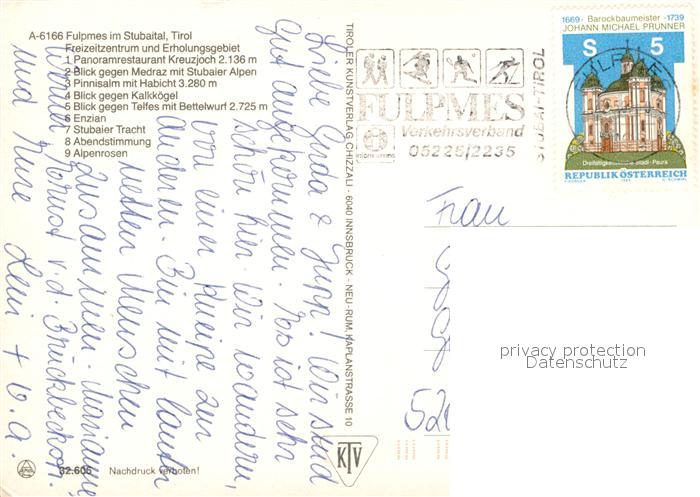 A-6166 Fulpmes im Stubaital, Tirol
Freizeitzentrum und Erholungsgebiet
1 Panoramarestaurant Kreuzjoch 2.136 m
2 Blick gegen Medraz mit Stubaier Alpen
3 Pinnisalm mit Habicht 3.280 m
4 Blick gegen Kalkkögel
5 Blick gegen Telfes mit Bettelwurf 2.725 m
6 Enzian
7 Stubaier Tracht
8 Abendstimmung
9 Alpenrosen
Liebe Gerda & Jupp! Wir sind
gut angekommen. Es ist sehr
schön hier. Wir wandern,
von einer Kneipe zur
anderen. Bin mit lauter
netten Menschen
zusammen. Marianne
Werner Horust v.d. Brückbeckon.
und Rure Leni + v.a.
32.605 Nachdruck verboten!
TIROLER KUNSTVERLAG CHIZZALI · 6040 INNSBRUCK - NEU-RUM, KAPLANSTRASSE 10
KTV
FULPMES
Verkehrsverband
05225/2235
STUBAI-TIROL
1669- Barockbaumeister -1739
JOHANN MICHAEL PRUNNER
S 5
Dreifaltigkeitskirche Stadl-Paura
REPUBLIK ÖSTERREICH
Frau
52
privacy protection
Datenschutz